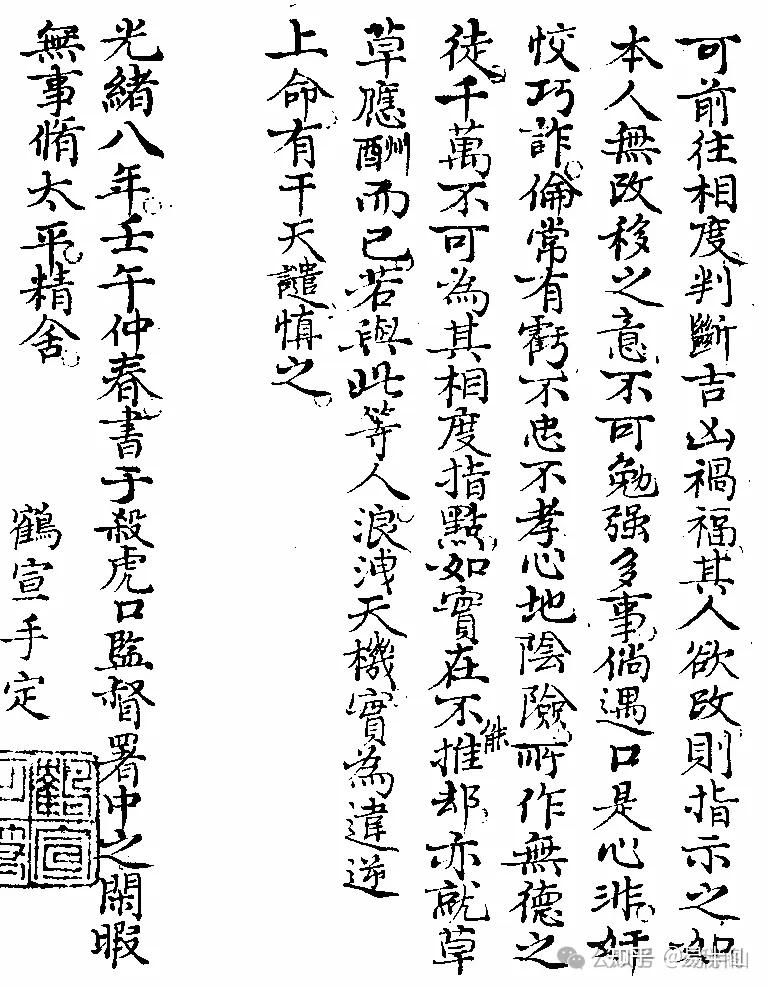 可前往相度判斷吉凶禍福其人欲改則指示之如
本人無改移之意不可勉强多事倘遇口是心非奸
恔巧詐倫常有虧不忠不孝心地陰險所作無德之
徒千萬不可為其相度指點如實在不能推却亦就草
草應酬而已若與此等人浪洩天機實為違逆
上命有干天譴慎之
光緒八年壬午仲春書于殺虎口監督署中之閑暇
無事脩太平精舍
鶴宣手定
知乎